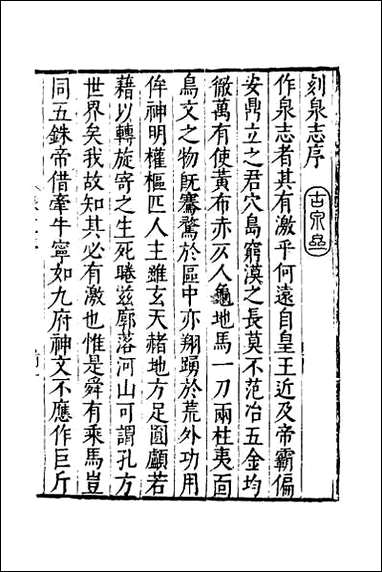 刻泉志序
作泉志者其有激乎何遠自皇王近及帝霸偏
安鼎立之君穴島窮漠之長莫不范冶五金均
徹萬有使黃布赤仄人龜地馬一刀兩柱夷面
鳥文之物旣騫騖於區中亦翔踴於荒外功用
侔神明權樞匹人主雖玄天赭地方足圓顱若
藉以轉旋寄之生死睠兹廓落河山可謂孔方
世界矣我故知其必有激也惟是舜有乘馬豈
同五銖帝借牽牛寧如九府神文不應作巨斤